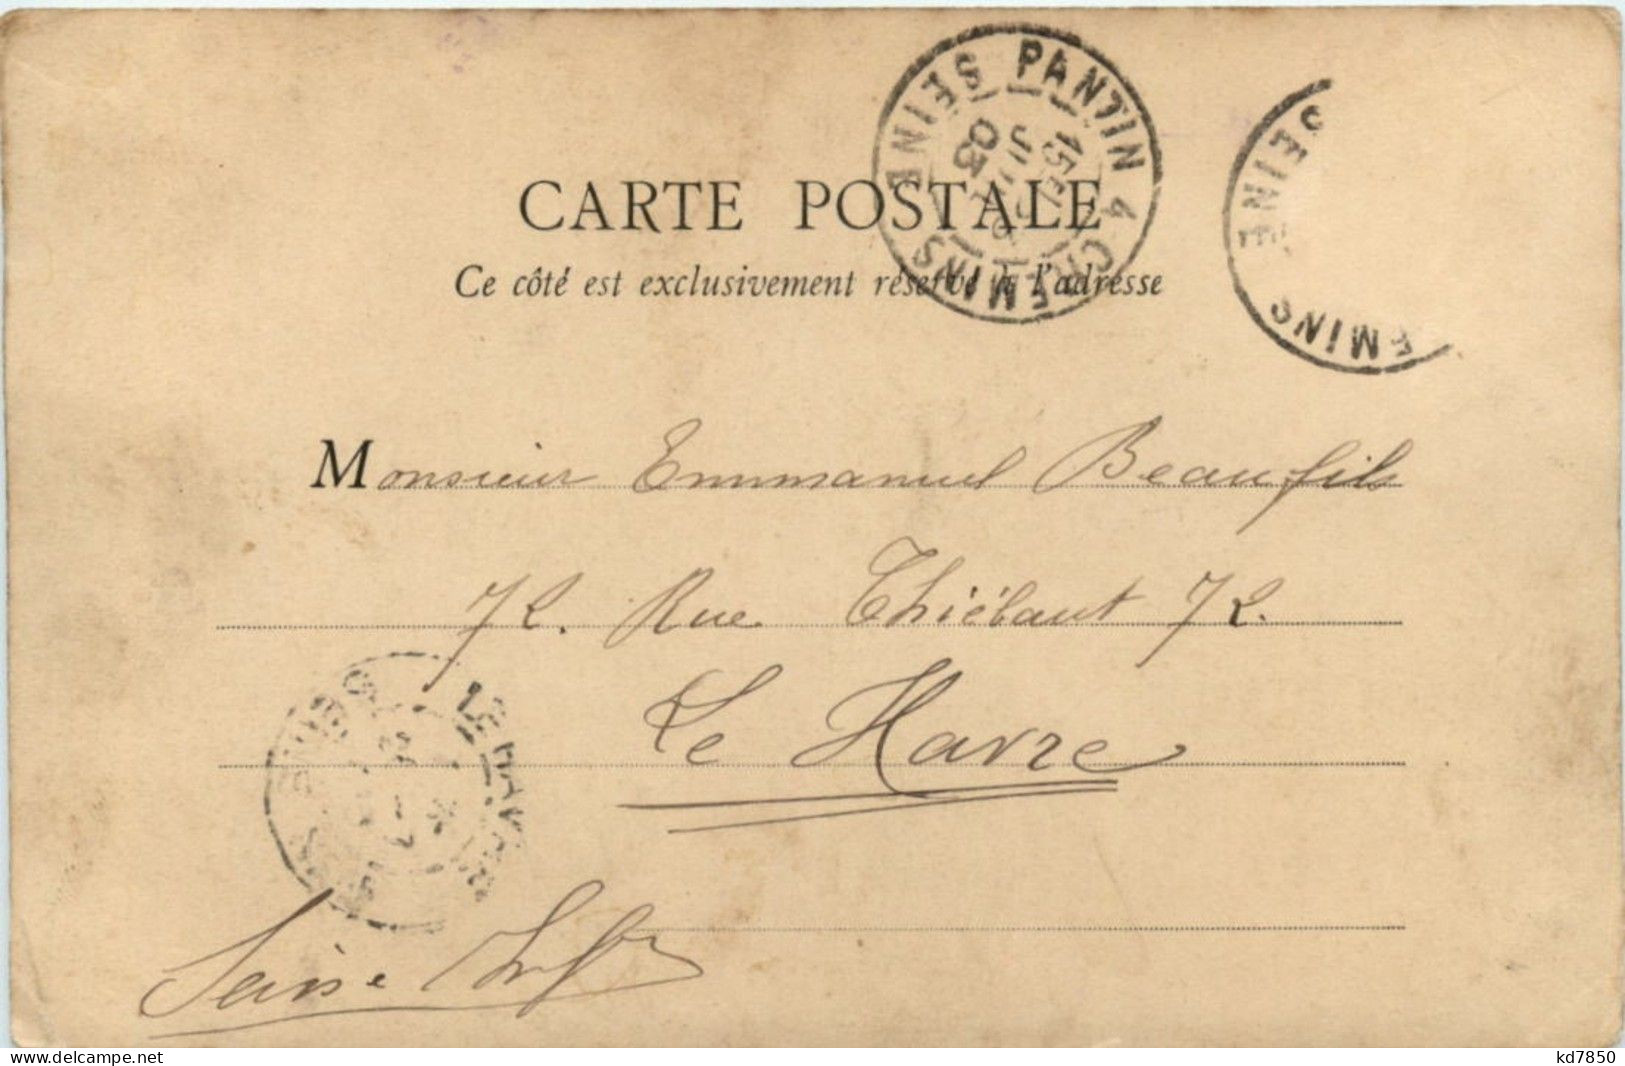 CARTE POSTALE
Ce côté est exclusivement réservé à l'adresse
PANTIN 4 CHEMINS
SEINE
15E/
JUIL
03
SEINE
EMINS
Monsieur Emmanuel Beaufils
72. Rue Thiébaut 72.
Le Havre
LE HAVRE
Seine Infre
delcampe.net
kd7850